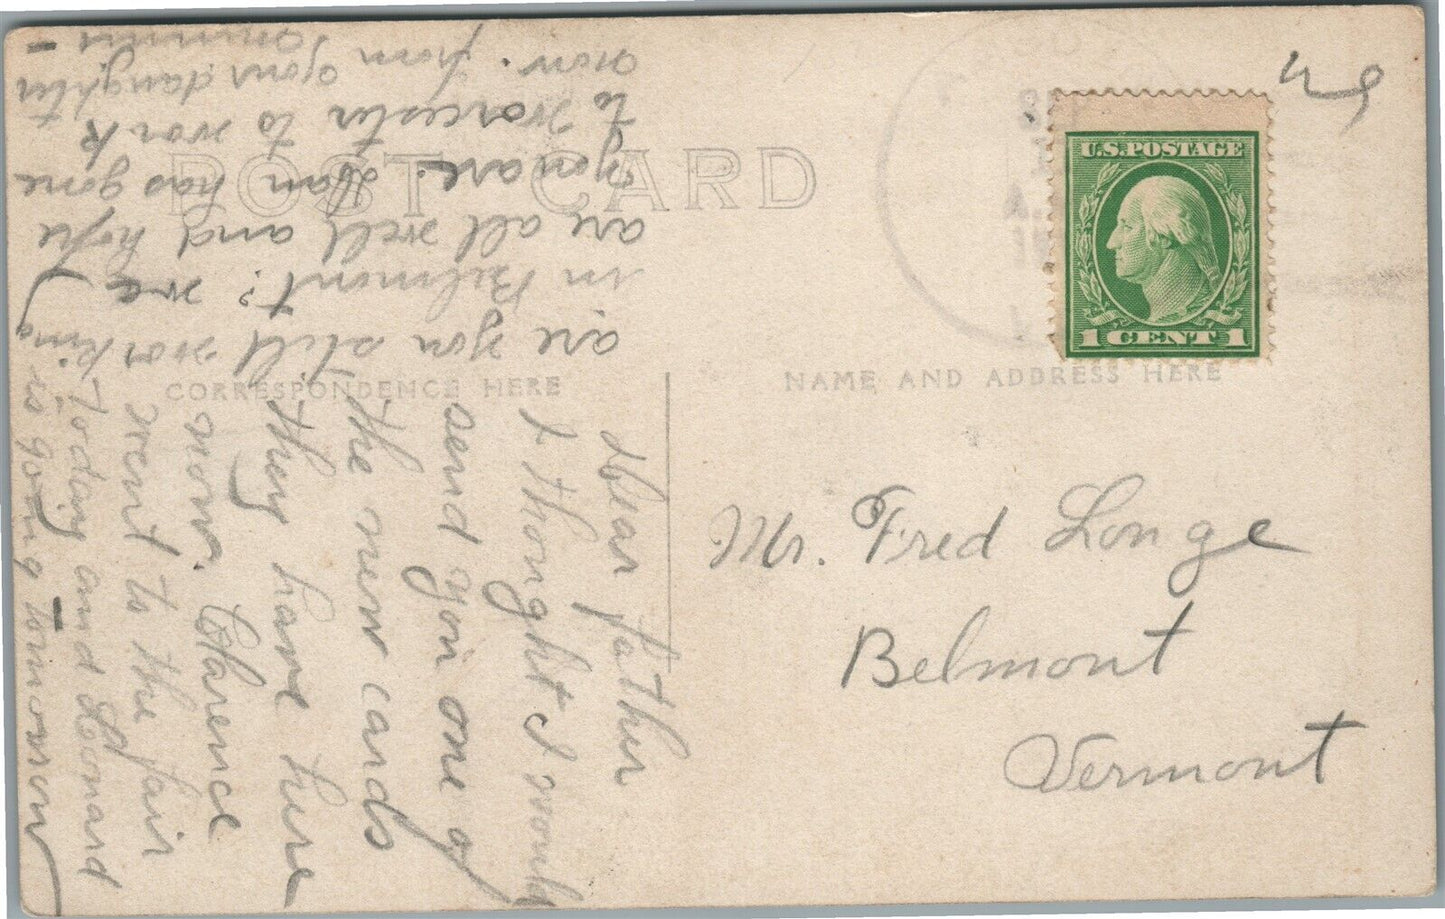 POST CARD
CORRESPONDENCE HERE
NAME AND ADDRESS HERE
U.S. POSTAGE
1 CENT 1
Mr. Fred Longe
Belmont
Vermont
Dear father
I thought I would
send you one of
the new cards
they have here
now. Clarence
went to the fair
Today and Leonard
is going tomorrow
are you still working
in Belmont? we
are all well and hope
you are. Dan has gone
to worcester to work
now. from your daughter